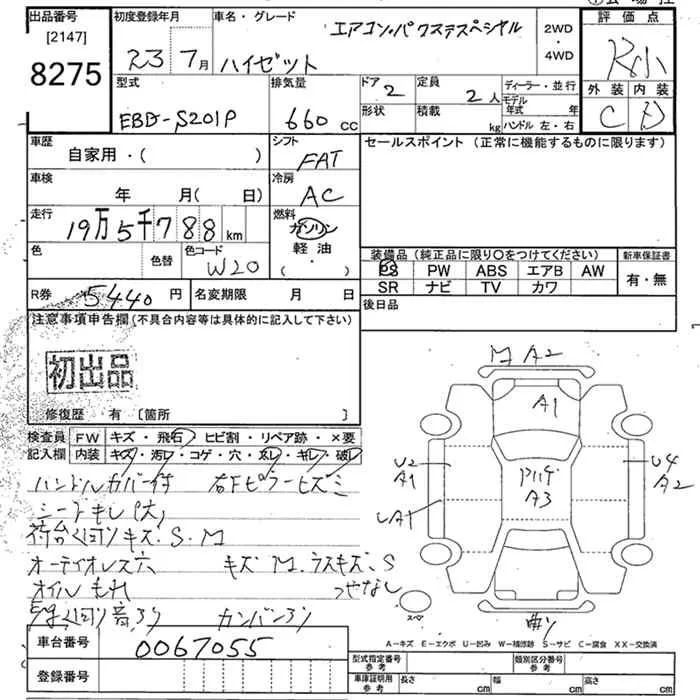 出品番号 初度登録年月 車名・グレード 評価点
[2147]
8275
23 7月 ハイゼット エアコン・パワステスペシャル 2WD・4WD
型式 排気量 ドア 定員 ディーラー・並行
EBD-S201P 660 cc 2 2人 モデル年式 年
形状 積載 kg ハンドル 左・右
外装 内装
C D
車歴 シフト セールスポイント (正常に機能するものに限ります)
自家用・( ) FAT
車検 冷房
年 月(日) AC
走行 燃料
19万5千788km ガソリン・軽油 ( )
色 色替 色コード
W20
装備品 (純正品に限り〇をつけてください) 新車保証書
PS PW ABS エアB AW 有・無
SR ナビ TV カワ
R券 5440円 名変期限 月 日 後日品
注意事項申告欄 (不具合内容等は具体的に記入して下さい)
初出品
修復歴 有 [箇所 ]
検査員 FW キズ・飛石・ヒビ割・リペア跡・×要
記入欄 内装 キズ・汚レ・コゲ・穴・スレ・キレ・破レ
ハンドルカバー付 右Fピラーヒズミ
シートもレ(大)
荷台 キズ.S.M
オーディオレス穴 キズM.ラスキズ.S
オイルもれ つやなし
音アリ カンバンアリ
M A2
A1
U2
A1
A3
U4
A2
曲リ
スペア
A-キズ E-エクボ U-凹み W-補修跡 S-サビ C-腐食 XX-交換済
車台番号 0067055
登録番号
型式指定番号 参考 類別区分番号 参考
車庫証明用 参考 長さ cm 幅 cm 高さ cm